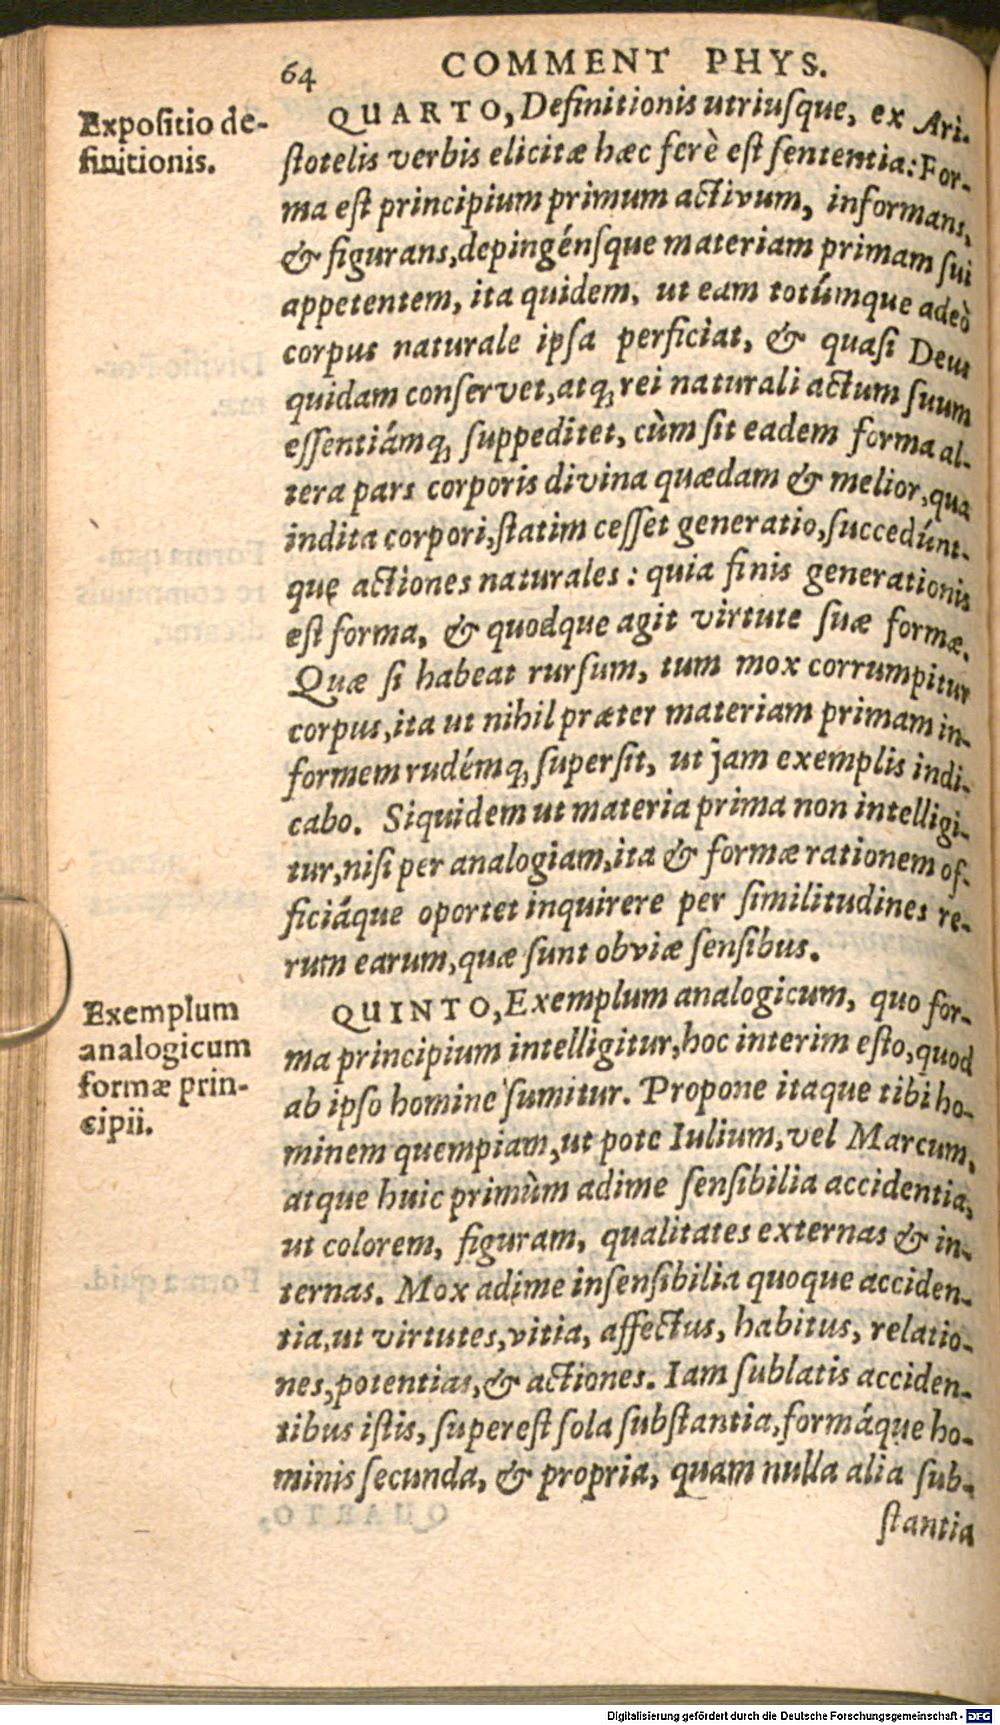 64 COMMENT PHYS.
Expositio de-
finitionis.
QUARTO, Definitionis utriusque, ex Ari-
stotelis verbis elicitæ hæc ferè est sententia: For-
ma est principium primum activum, informans,
& figurans, depingénsque materiam primam sui
appetentem, ita quidem, ut eam totúmque adeò
corpus naturale ipsa perficiat, & quasi Deus
quidam conservet, atq; rei naturali actum suum
essentiámq; suppeditet, cùm sit eadem forma al-
tera pars corporis divina quædam & melior, qua
indita corpori, statim cesset generatio, succedúnt-
que actiones naturales: quia finis generationis
est forma, & quodque agit virtute suæ formæ.
Quæ si habeat rursum, tum mox corrumpitur
corpus, ita ut nihil præter materiam primam in-
formem rudémq; supersit, ut jam exemplis indi-
cabo. Siquidem ut materia prima non intelligi-
tur, nisi per analogiam, ita & formæ rationem of-
ficiáque oportet inquirere per similitudines re-
rum earum, quæ sunt obviæ sensibus.
Exemplum
analogicum
formæ prin-
cipii.
QUINTO, Exemplum analogicum, quo for-
ma principium intelligitur, hoc interim esto, quod
ab ipso homine sumitur. Propone itaque tibi ho-
minem quempiam, ut pote Iulium, vel Marcum,
atque huic primùm adime sensibilia accidentia,
ut colorem, figuram, qualitates externas & in-
ternas. Mox adime insensibilia quoque acciden-
tia, ut virtutes, vitia, affectus, habitus, relatio-
nes, potentias, & actiones. Iam sublatis acciden-
tibus istis, superest sola substantia, formáque ho-
minis secunda, & propria, quam nulla alia sub-
stantia
Digitalisierung gefördert durch die Deutsche Forschungsgemeinschaft - DFG